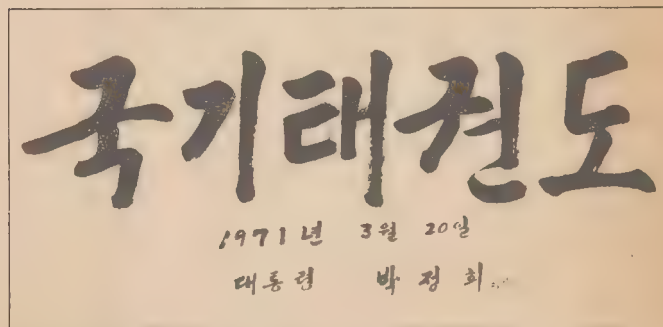 국기태권도
1971년 3월 20일
대통령 박정희